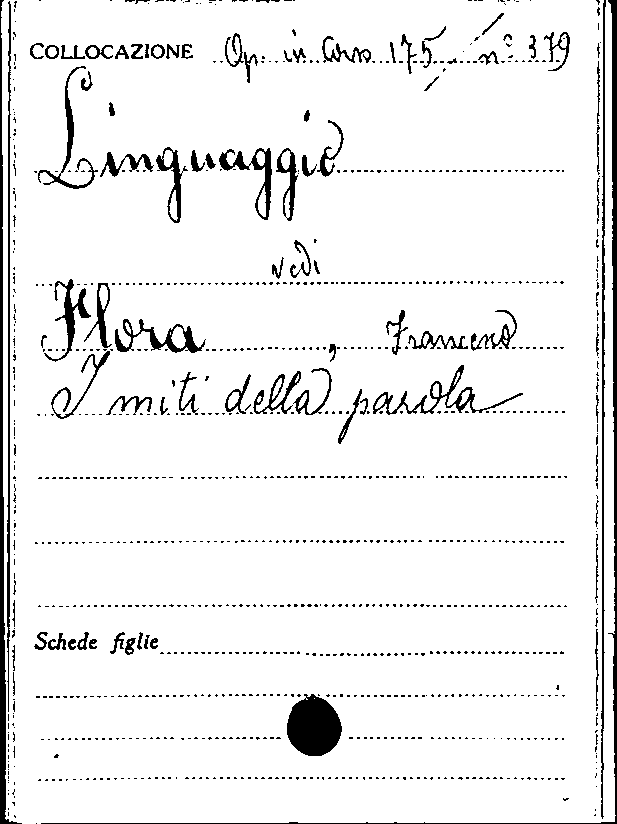 COLLOCAZIONE Op. in Corso 175 / n° 379
Linguaggio
vedi
Flora, Francesco
I miti della parola
Schede figlie